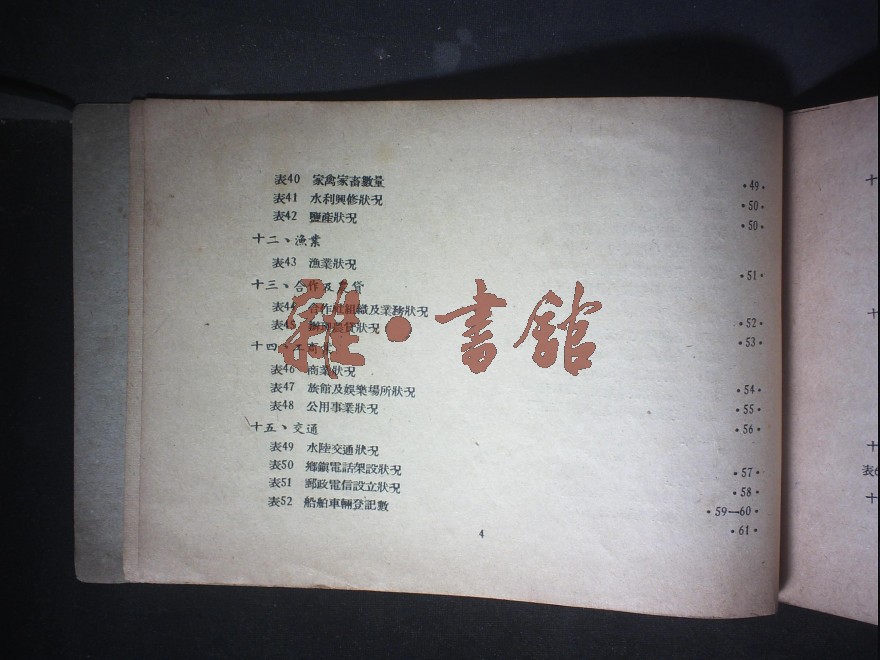 表40 家禽家畜數量 ·49·
表41 水利興修狀况 ·50·
表42 鹽產狀况 ·50·
十二、漁業
表43 漁業狀况 ·51·
十三、合作及農貸
表44 合作社組織及業務狀况 ·52·
表45 農貸狀况 ·53·
十四、工商業
表46 商業狀况 ·54·
表47 旅館及娛樂場所狀况 ·55·
表48 公用事業狀况 ·56·
十五、交通
表49 水陸交通狀况 ·57·
表50 鄉鎭電話架設狀况 ·58·
表51 郵政電信設立狀况 ·59—60·
表52 船舶車輛登記數 ·61·
4
雜·書館
十
十
十
表6
十